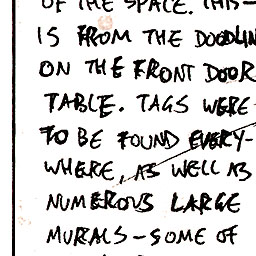 OF THE SPACE. THIS—
IS FROM THE DOODLIN
ON THE FRONT DOOR
TABLE. TAGS WERE
TO BE FOUND EVERY-
WHERE, AS WELL AS
NUMEROUS LARGE
MURALS—SOME OF